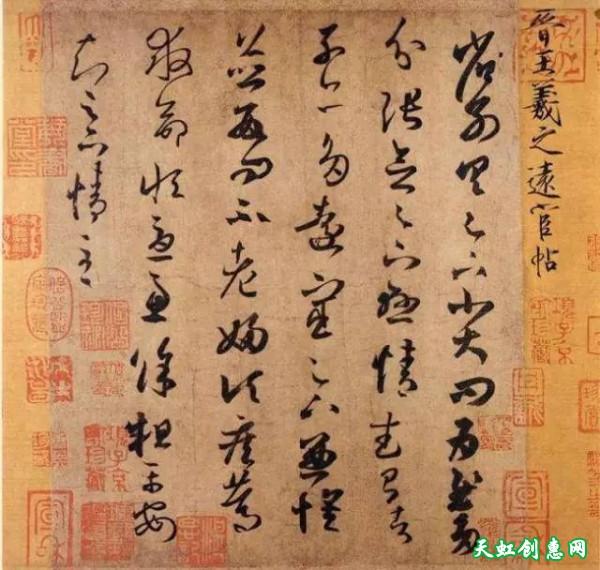 晉王羲之遠宦帖
省別具足下小大問為慰多
分張念足下懸情武昌諸
子亦多遠宦足下兼懷
並數問不老婦頃疾篤
救命恒憂慮餘粗平安
知足下情至
天虹创惠网